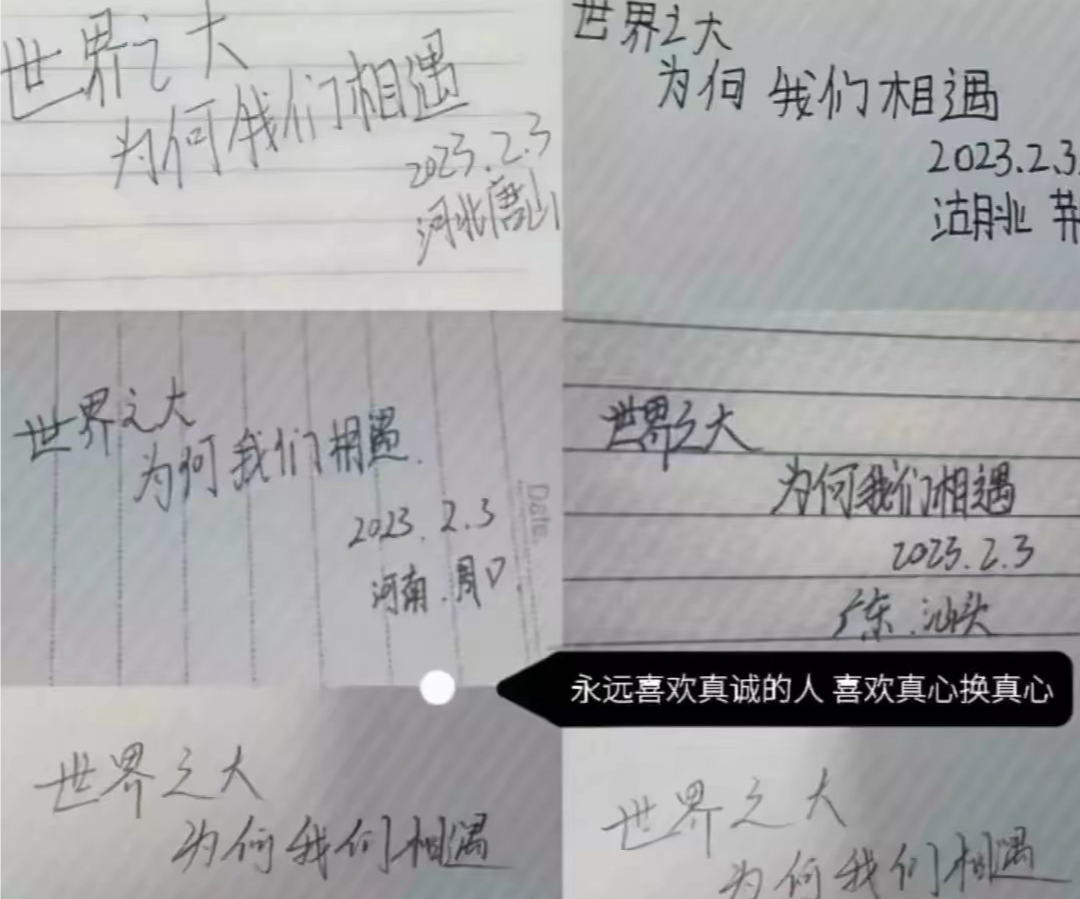 世界之大
为何我们相遇
2023.2.3
河北唐山
世界之大
为何 我们相遇
2023.2.3
湖北 荆
世界之大
为何我们相遇.
2023.2.3
河南.周口.
Date.
世界之大
为何我们相遇
2023.2.3
广东.汕头
永远喜欢真诚的人 喜欢真心换真心
世界之大
为何我们相遇
世界之大
为何我们相遇